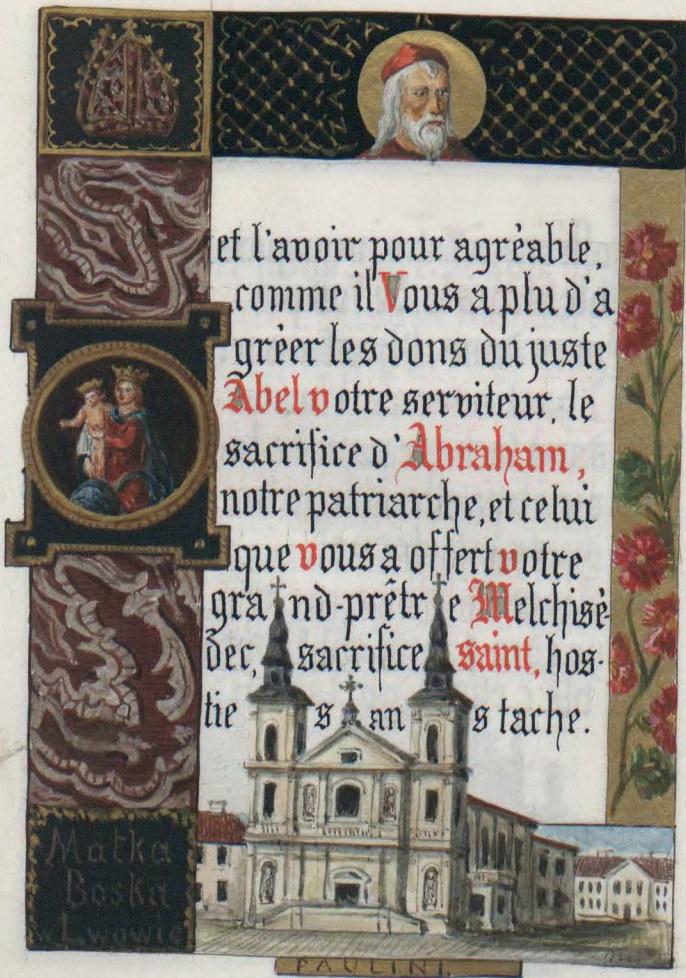 et l'avoir pour agréable,
comme il Vous a plu d'a
gréer les dons du juste
Abel votre serviteur, le
sacrifice d'Abraham,
notre patriarche, et celui
que vous a offert votre
grand-prêtre Melchisé-
dec, sacrifice saint, hos-
tie sans tache.
Matka
Boska
w Lwowie
PAULINI.